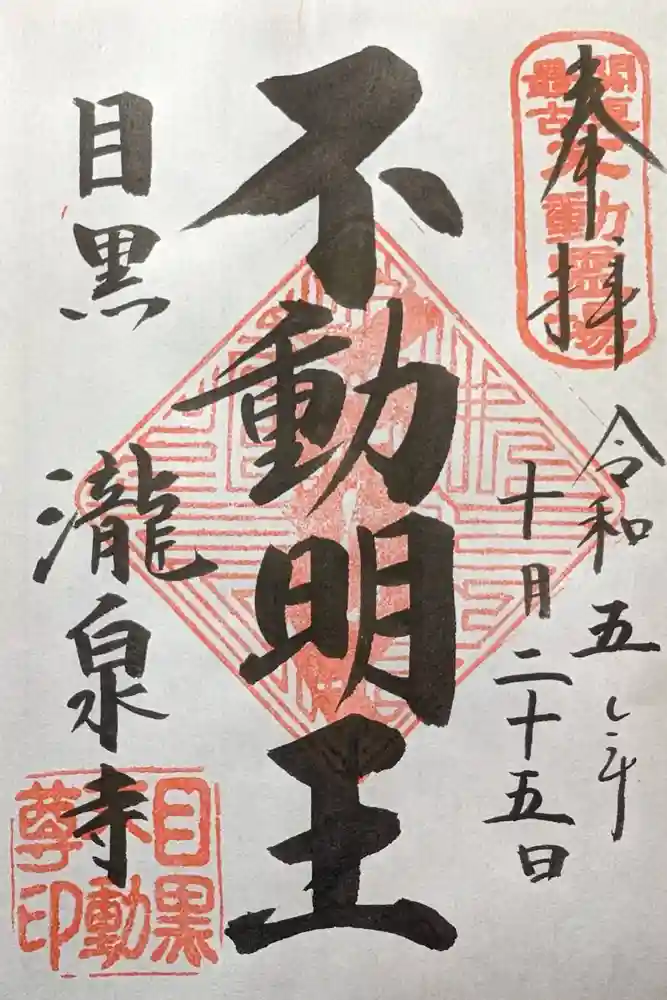 奉拝
関東最古不動霊場
令和五年
十月二十五日
不動明王
目黒
瀧泉寺
目黒不動尊印